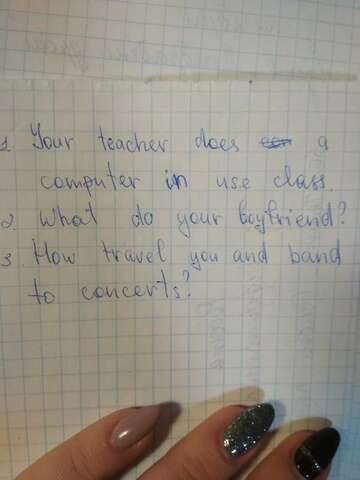 1. Your teacher does a
computer in use class.
2. What do your boyfriend?
3 How travel you and band
to concerts?